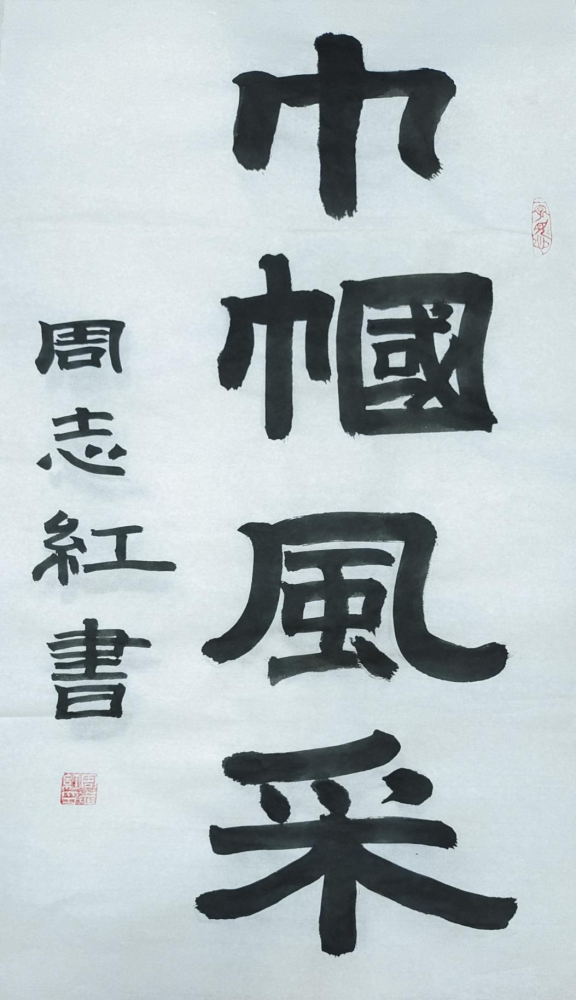 巾幗風采
周志紅書